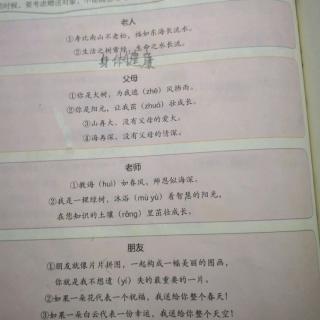 时候，要考虑赠送对象，不能
老人
①寿比南山不老松，福如东海长流水。
②生活之树常绿，生命之水长流。
身体健康
父母
①你是大树，为我遮（zhē）风挡雨。
②你是阳光，让我茁（zhuó）壮成长。
③山再大，没有父母的爱大。
④海再深，没有父母的情深。
老师
①教诲（huì）如春风，师恩似海深。
②我是一棵绿树，沐浴（mù yù）着智慧的阳光，
在您知识的土壤（rǎng）里茁壮成长。
朋友
①朋友就像片片拼图，一起构成一幅美丽的图画，
你就是我不想遗（yí）失的最重要的一片。
②如果一朵花代表一个祝福，我送给你整个春天！
③如果一朵白云代表一份幸运，我送给你整个天空！